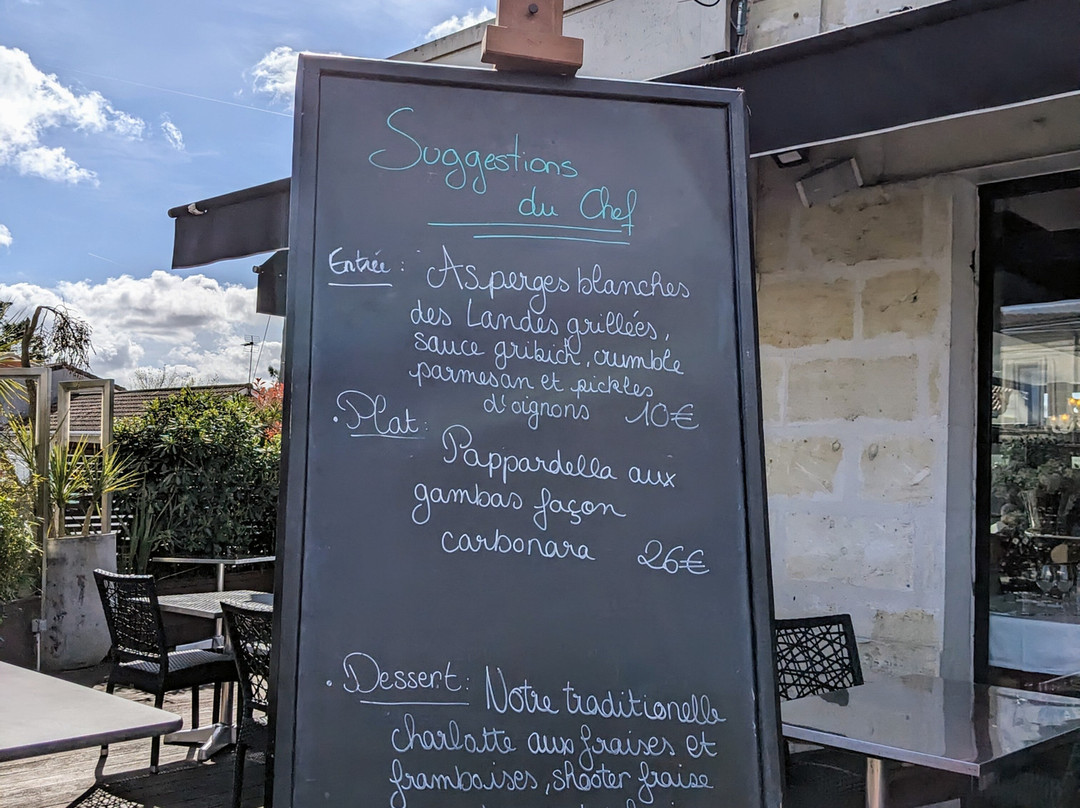 Suggestions
du Chef
Entrée : Asperges blanches
des Landes grillées,
sauce gribich, crumble
parmesan et pickles
d'oignons 10€
• Plat :
Pappardella aux
gambas façon
carbonara 26€
• Dessert : Notre traditionelle
charlotte aux fraises et
framboises, shooter fraise